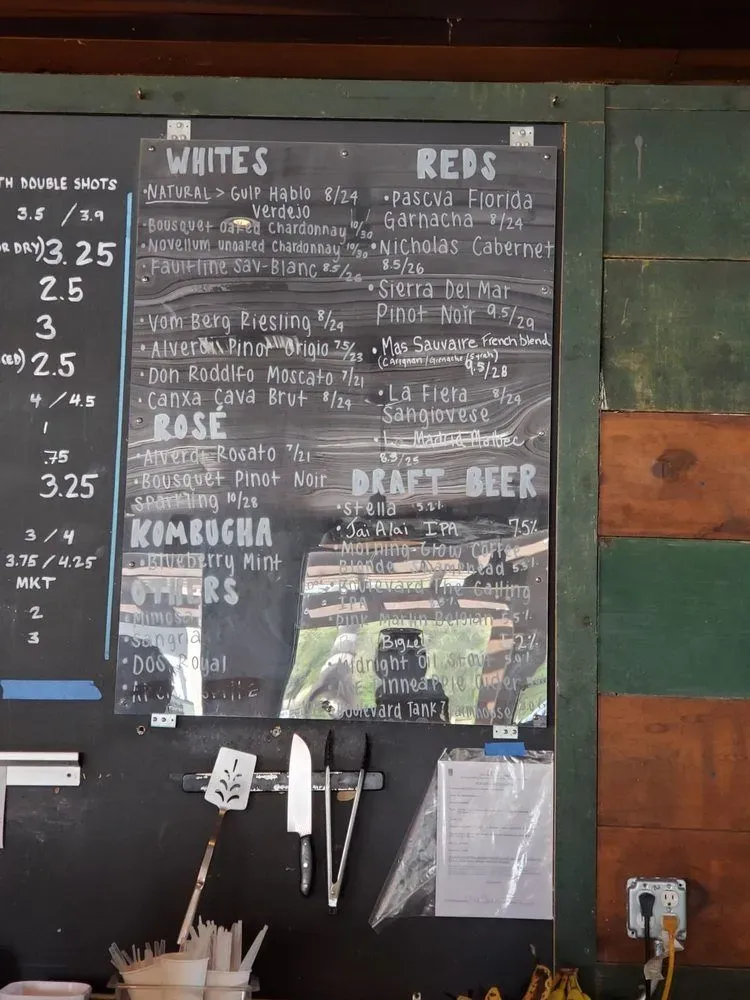 TH DOUBLE SHOTS
3.5 / 3.9
OR DRY) 3.25
2.5
3
2.5
4 / 4.5
1
.75
3.25
3 / 4
3.75 / 4.25
MKT
2
3
WHITES
•NATURAL > GUIP Hablo 8/24
Verdejo
•Bousquet oaked Chardonnay 10/30
•Novellum unoaked Chardonnay 10/30
•Faultline Sav-Blanc 8.5/26
•Vom Berg Riesling 8/24
•Alverdi Pinot Grigio 7.5/23
•Don Rodolfo Moscato 7/21
•Canxa Cava Brut 8/24
ROSÉ
•Alverdi Rosato 7/21
•Bousquet Pinot Noir
Sparkling 10/28
KOMBUCHA
•Blueberry Mint
OTHERS
•Mimosa
•Sangria
•DOS Royal
REDS
•Pascua Florida
Garnacha 8/24
•Nicholas Cabernet
8.5/26
•Sierra Del Mar
Pinot Noir 9.5/29
•Mas Sauvaire French blend
(Carignan/Grenache/Syrah)
9.5/28
•La Fiera 8/24
Sangiovese
Madrid Malbec
DRAFT BEER
•Stella 5.2%
•Jai Alai IPA 7.5%
•Morning-Glow Coffee
Blonde
•Boulevard The Calling
IPA
Belgian
Midnight Oil Stout
Pinneapple Cider
Boulevard Tank 7